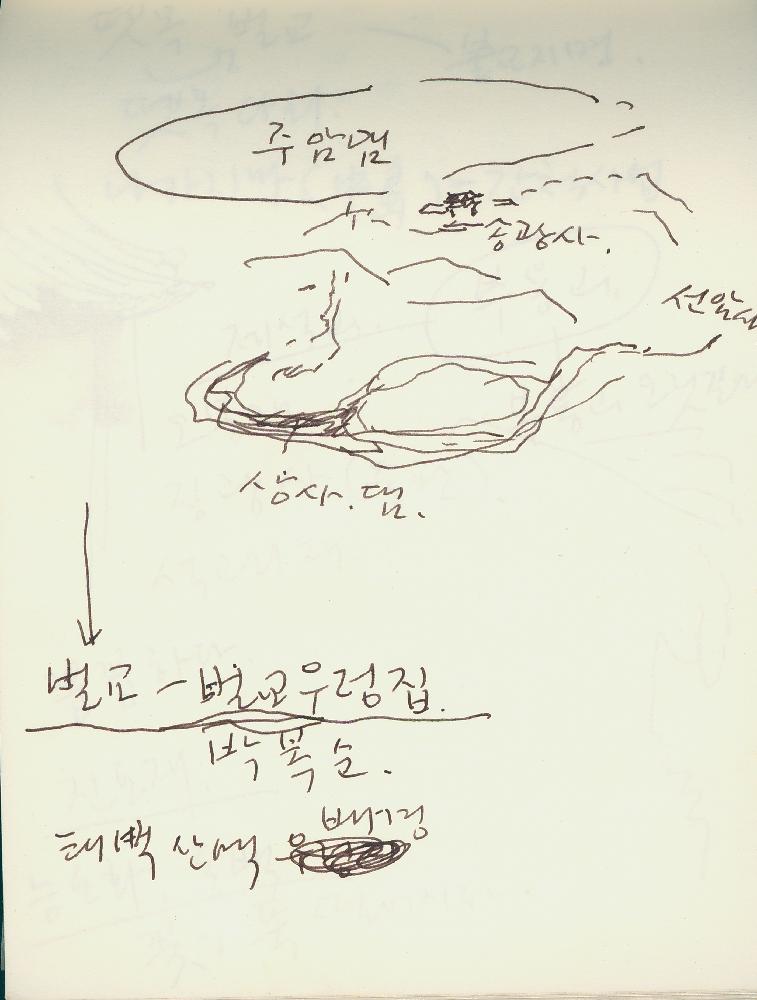 주암댐
송광사.
선암사
상사.댐.
벌교 - 벌교우렁집.
박복순.
배경
태백산맥